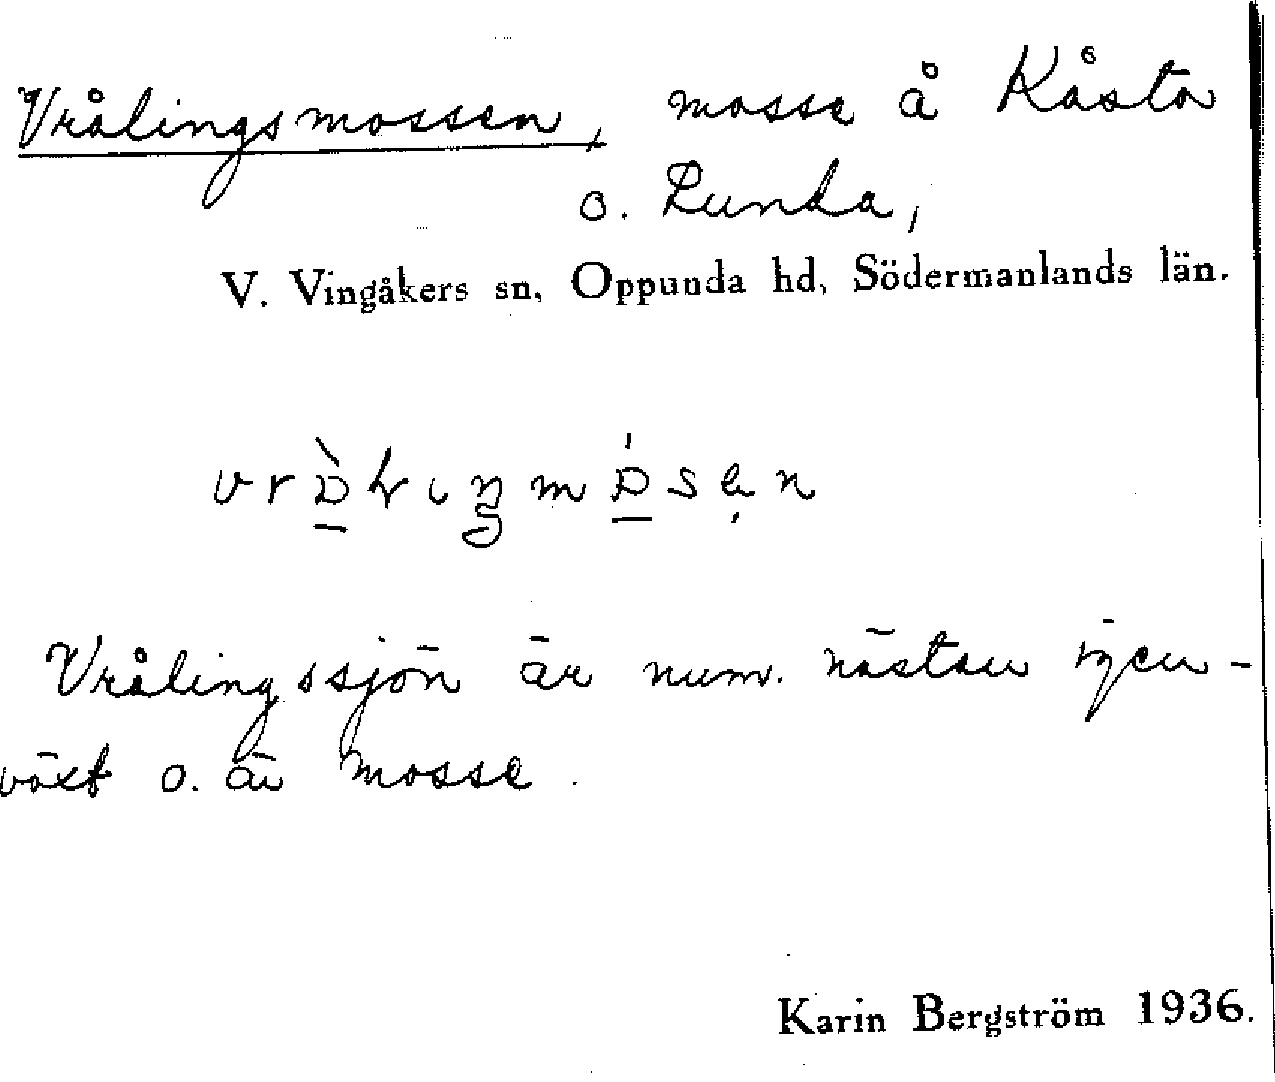 Vrålingsmossen, mosse å Kåsta
o. Lunda,
V. Vingåkers sn, Oppunda hd, Södermanlands län.
Vrålingssjön är num. nästan igen-
växt o. är mosse.
Karin Bergström 1936.